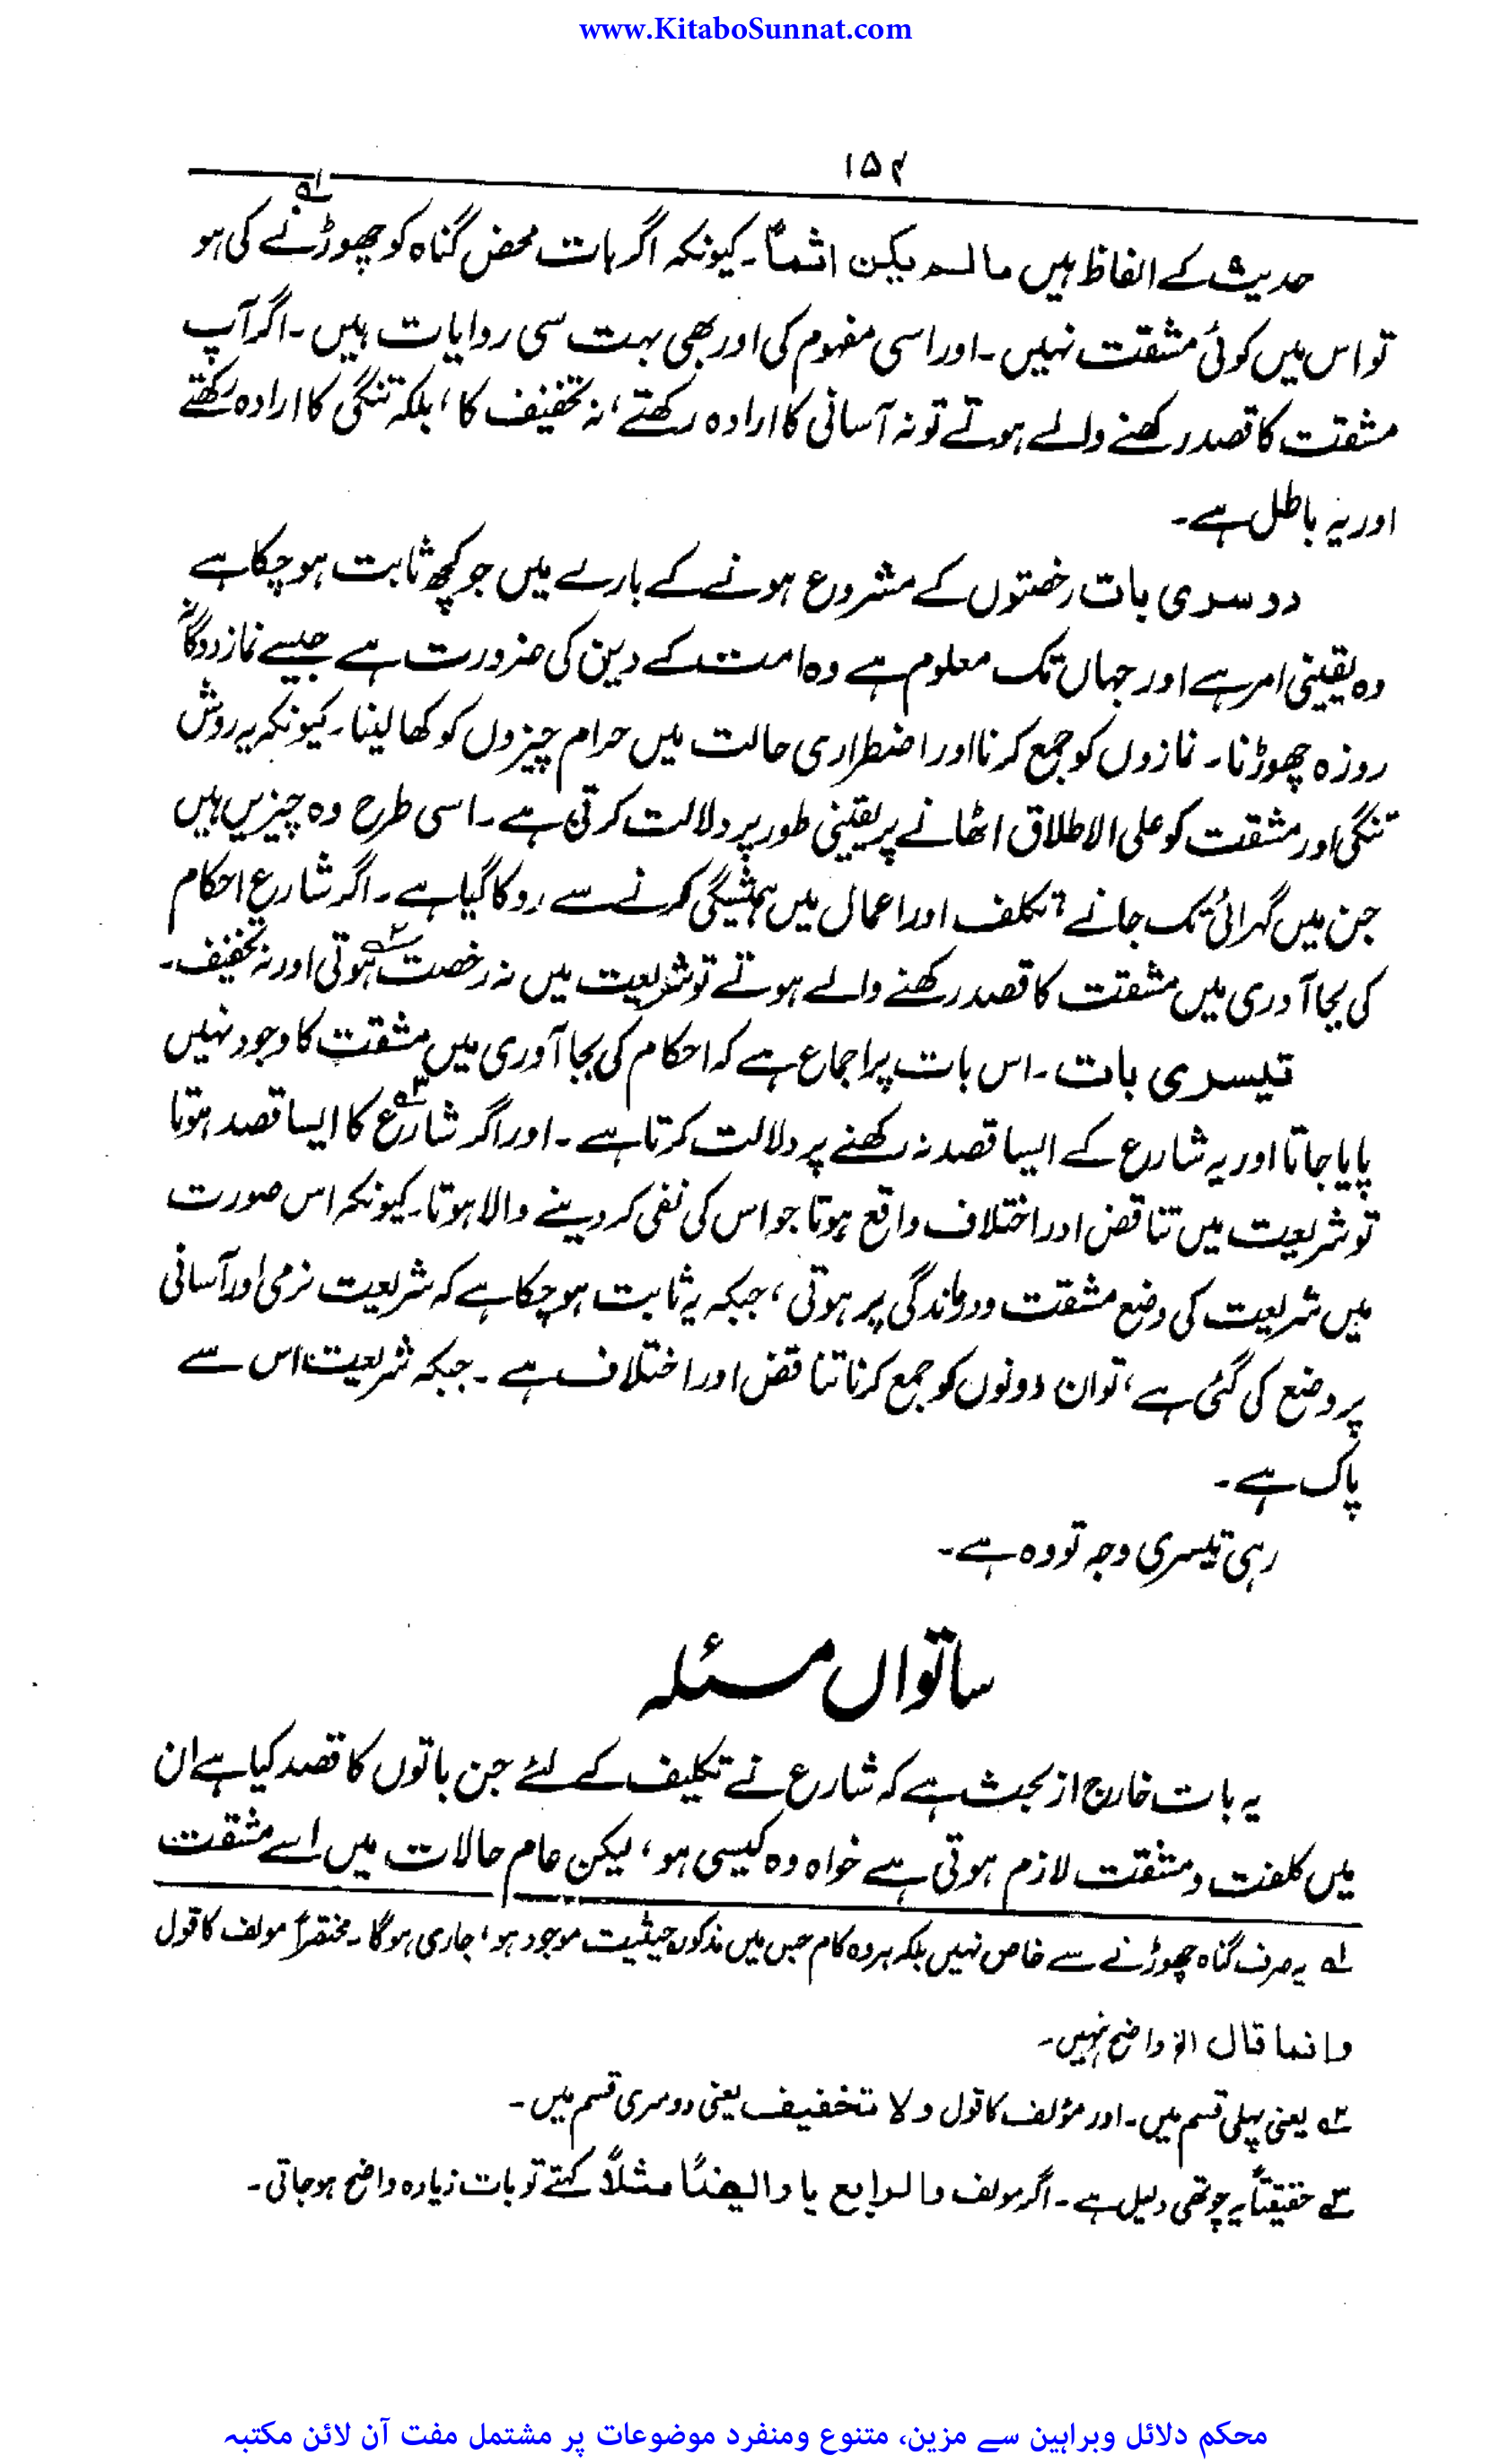 www.KitaboSunnat.com
۱۵۴
حدیث کے الفاظ ہیں مالم یکن اثماً۔ کیونکہ اگر بات محض گناہ کو چھوڑنے کی ہو لہ
تو اس میں کوئی مشقت نہیں۔ اور اسی مفہوم کی اور بھی بہت سی روایات ہیں۔ اگر آپ
مشقت کا قصد رکھنے والے ہوتے تو نہ آسانی کا ارادہ رکھتے، نہ تخفیف کا، بلکہ تنگی کا ارادہ رکھتے
اور یہ باطل ہے۔
دوسری بات رخصتوں کے مشروع ہونے کے بارے میں جو کچھ ثابت ہو چکا ہے
وہ یقینی امر ہے اور جہاں تک معلوم ہے وہ امت کے دین کی ضرورت ہے جیسے نماز دوگانہ
روزہ چھوڑنا۔ نمازوں کو جمع کرنا اور اضطراری حالت میں حرام چیزوں کو کھا لینا۔ کیونکہ یہ روش
تنگی اور مشقت کو علی الاطلاق اٹھانے پر یقینی طور پر دلالت کرتی ہے۔ اسی طرح وہ چیزیں ہیں
جن میں گہرائی تک جانے، تکلف اور اعمال میں ہمیشگی کرنے سے روکا گیا ہے۔ اگر شارع احکام
کی بجا آوری میں مشقت کا قصد رکھنے والے ہوتے تو شریعت میں نہ رخصت ۲ہ ہوتی اور نہ تخفیف۔
تیسری بات۔ اس بات پر اجماع ہے کہ احکام کی بجا آوری میں مشقت کا وجود نہیں
پایا جاتا اور یہ شارع کے ایسا قصد نہ رکھنے پر دلالت کرتا ہے۔ اور اگر شارع ۳ہ کا ایسا قصد ہوتا
تو شریعت میں تناقض اور اختلاف واقع ہوتا جو اس کی نفی کر دینے والا ہوتا۔ کیونکہ اس صورت
میں شریعت کی وضع مشقت ودرماندگی پر ہوتی، جبکہ یہ ثابت ہو چکا ہے کہ شریعت نرمی اور آسانی
پر وضع کی گئی ہے، تو ان دونوں کو جمع کرنا تناقض اور اختلاف ہے۔ جبکہ شریعت اس سے
پاک ہے۔
رہی تیسری وجہ تو وہ ہے۔
ساتواں مسئلہ
یہ بات خارج از بحث ہے کہ شارع نے تکلیف کے لئے جن باتوں کا قصد کیا ہے ان
میں کلفت و مشقت لازم ہوتی ہے خواہ وہ کیسی ہو، لیکن عام حالات میں اسے مشقت
لہ یہ صرف گناہ چھوڑنے سے خاص نہیں بلکہ ہر وہ کام جس میں مذکورہ حیثیت موجود ہو، جاری ہوگا۔ مختصراً مولف کا قول
وانما قال الخ واضح نہیں۔
۲ہ یعنی پہلی قسم میں۔ اور مؤلف کا قول ولا تخفیف یعنی دوسری قسم میں۔
۳ہ حقیقتاً یہ چوتھی دلیل ہے۔ اگر مولف والرابع یا والیضاً مثلاً کہتے تو بات زیادہ واضح ہو جاتی۔
محکم دلائل وبراہین سے مزین، متنوع ومنفرد موضوعات پر مشتمل مفت آن لائن مکتبہ